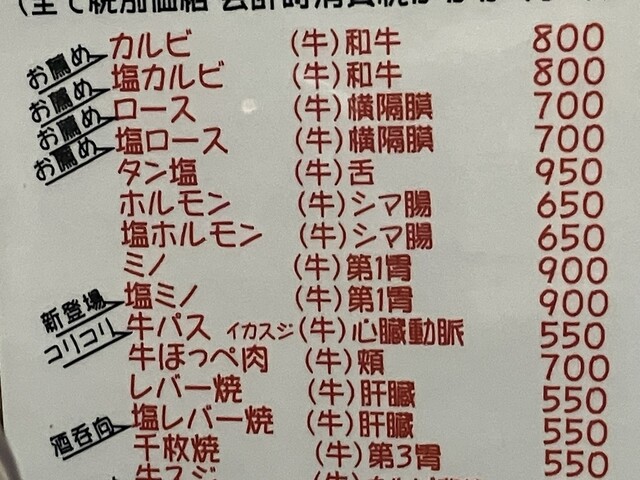 (全て税別価格 会計時消費税が
お薦め カルビ (牛)和牛 800
お薦め 塩カルビ (牛)和牛 800
お薦め ロース (牛)横隔膜 700
お薦め 塩ロース (牛)横隔膜 700
タン塩 (牛)舌 950
ホルモン (牛)シマ腸 650
塩ホルモン (牛)シマ腸 650
ミノ (牛)第1胃 900
新登場 塩ミノ (牛)第1胃 900
コリコリ 牛パス イカスジ (牛)心臓動脈 550
牛ほっぺ肉 (牛)頬 700
レバー焼 (牛)肝臓 550
酒呑向 塩レバー焼 (牛)肝臓 550
千枚焼 (牛)第3胃 550
牛スジ (牛)